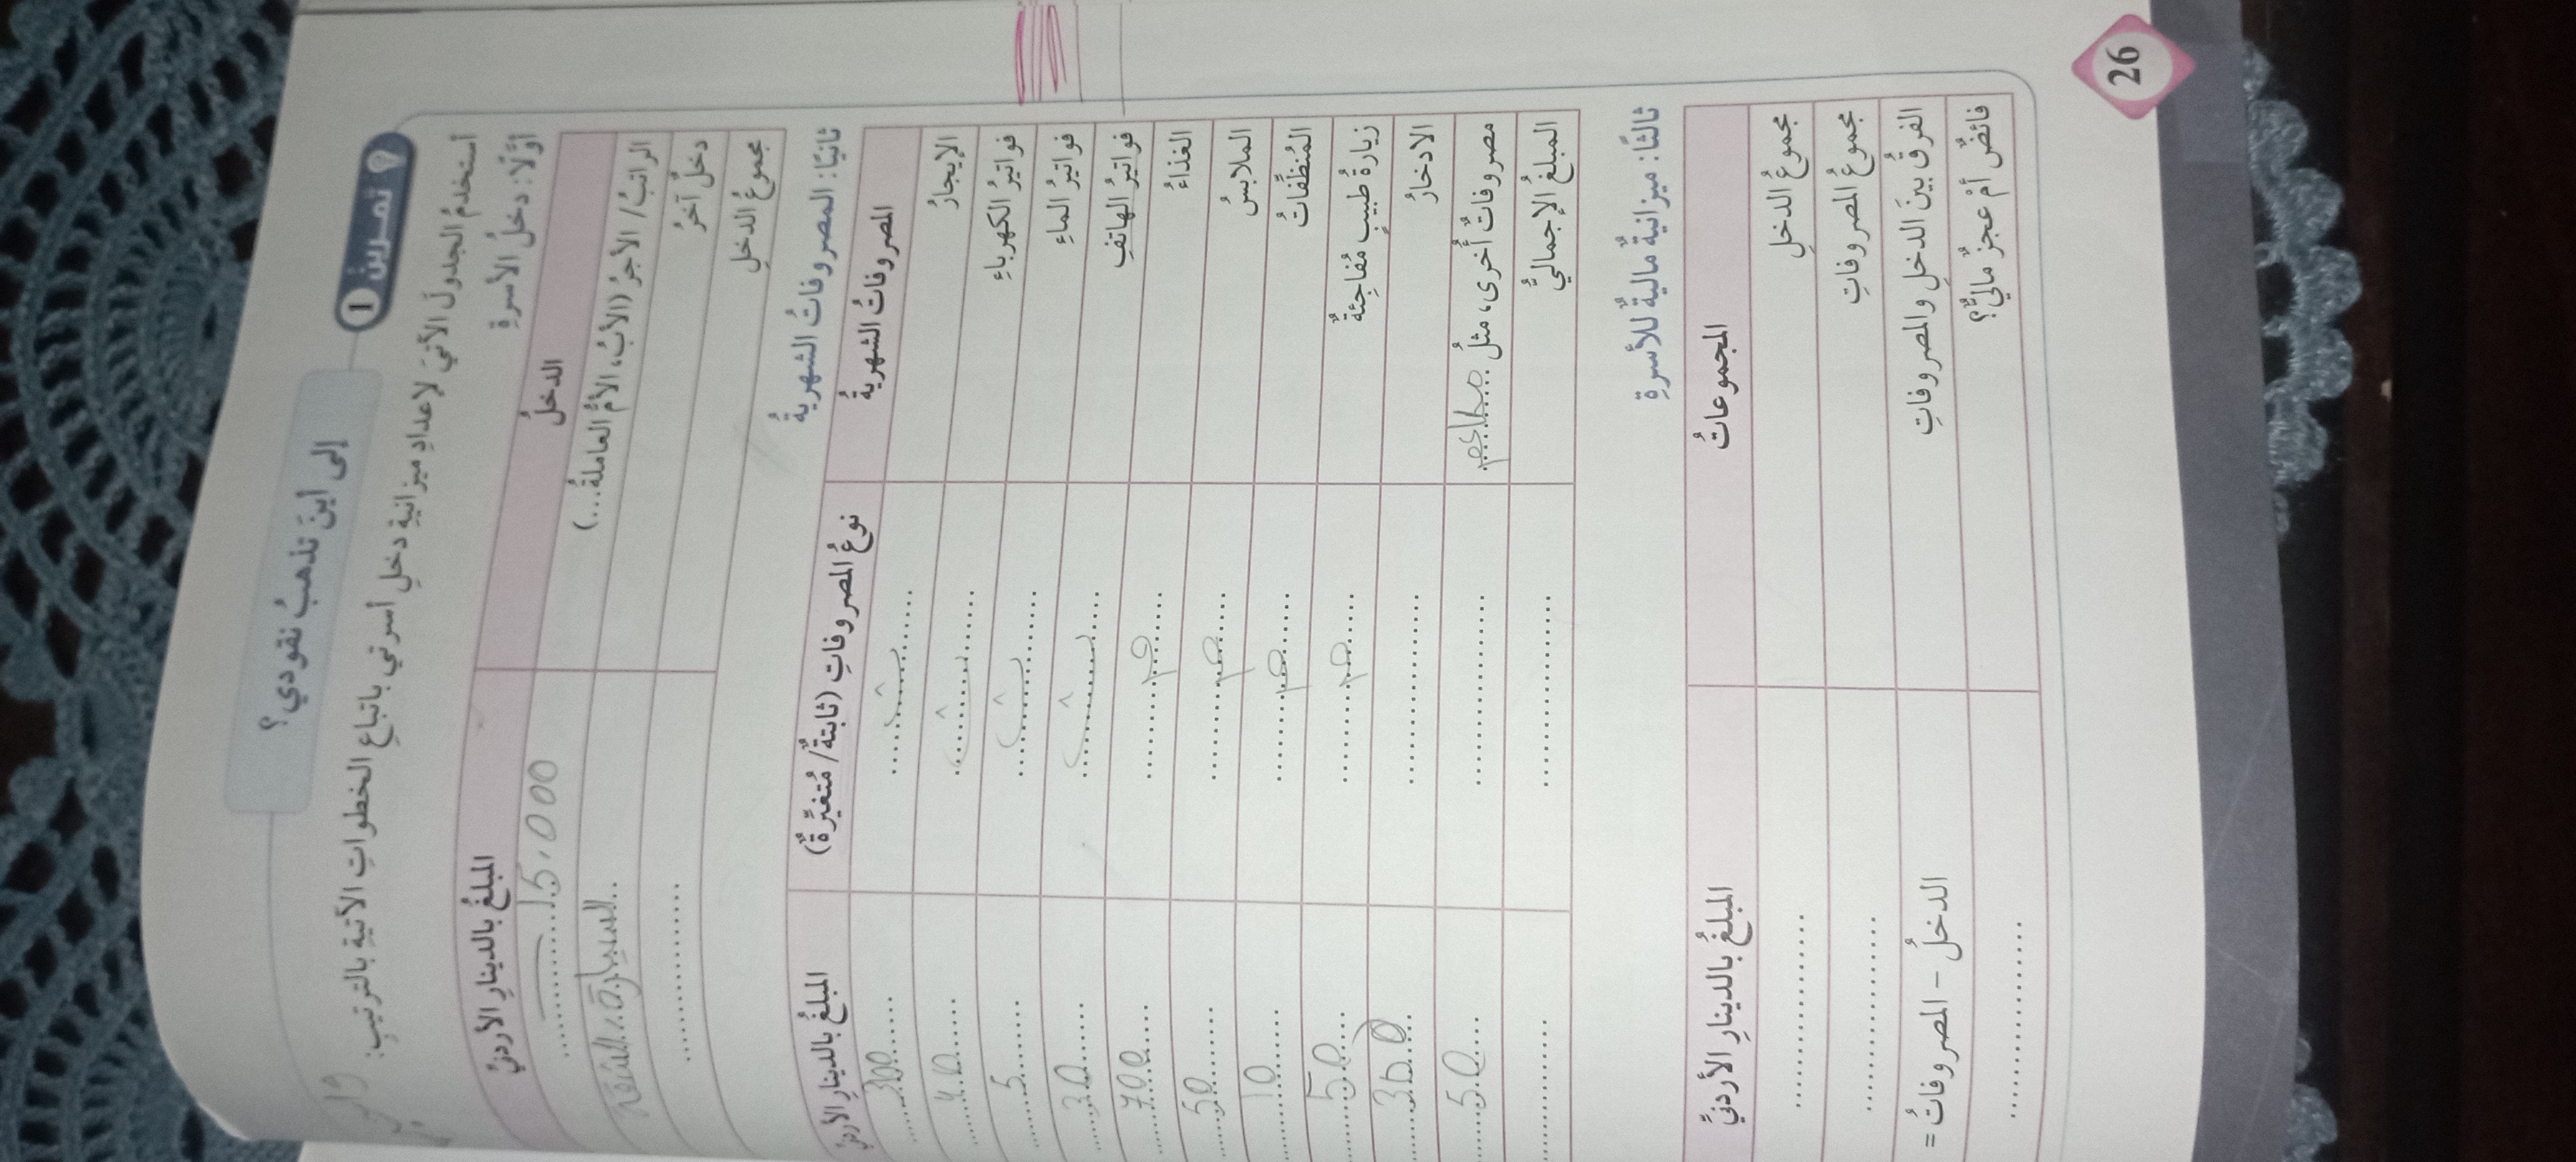 إلى أينَ تذهبُ نقودي؟
تمرين 1
أستخدمُ الجدولَ الآتيَ لإعدادِ ميزانيةِ دخلِ أسرتي باتباعِ الخطواتِ الآتيةِ بالترتيبِ:
أوّلًا: دخلُ الأسرةِ
الدخلُ المبلغُ بالدينارِ الأردنيِّ
الراتبُ/ الأجرُ (الأبُ، الأمُّ العاملةُ...)
دخلٌ آخرُ السيارة
مجموعُ الدخلِ ..................
ثانيًا: المصروفاتُ الشهريةُ
المصروفاتُ الشهريةُ نوعُ المصروفاتِ (ثابتةٌ/ مُتغيِّرةٌ) المبلغُ بالدينارِ الأردنيِّ
الإيجارُ 300
فواتيرُ الكهرباءِ
فواتيرُ الماءِ 5
فواتيرُ الهاتفِ 30
الغذاءُ م
الملابسُ م 50
المُنظِّفاتُ م 10
زيارةُ طبيبٍ مُفاجِئةٌ م 50
الادخارُ .................. 300
مصروفاتٌ أُخرى، مثلُ .................. 50
المبلغُ الإجماليُّ .................. ..................
ثالثًا: ميزانيةٌ ماليةٌ للأسرةِ
المجموعاتُ المبلغُ بالدينارِ الأردنيِّ
مجموعُ الدخلِ ..................
مجموعُ المصروفاتِ ..................
الفرقُ بينَ الدخلِ والمصروفاتِ الدخلُ - المصروفاتُ =
فائضٌ أمْ عجزٌ ماليٌّ؟ ..................
26